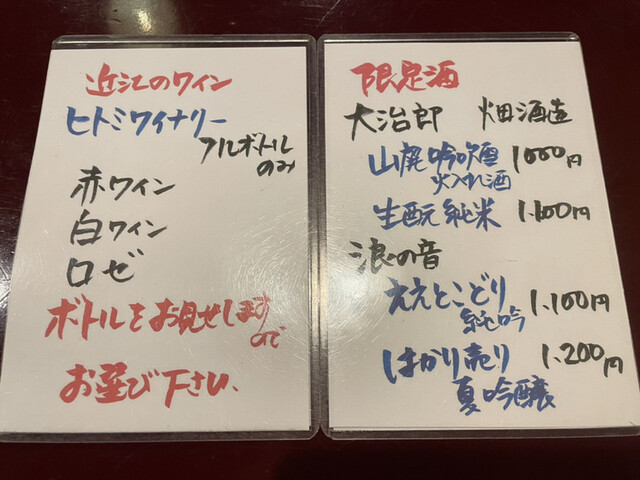 近江のワイン
ヒトミワイナリー
フルボトル
のみ
赤ワイン
白ワイン
ロゼ
ボトルをお見せしますので
お選び下さい、
限定酒
大治郎 畑酒造
山廃吟吹雪 1000円
火入れ酒
生酛純米 1.100円
浪の音
ええとこどり 1.100円
純吟
はかり売り 1.200円
夏吟醸